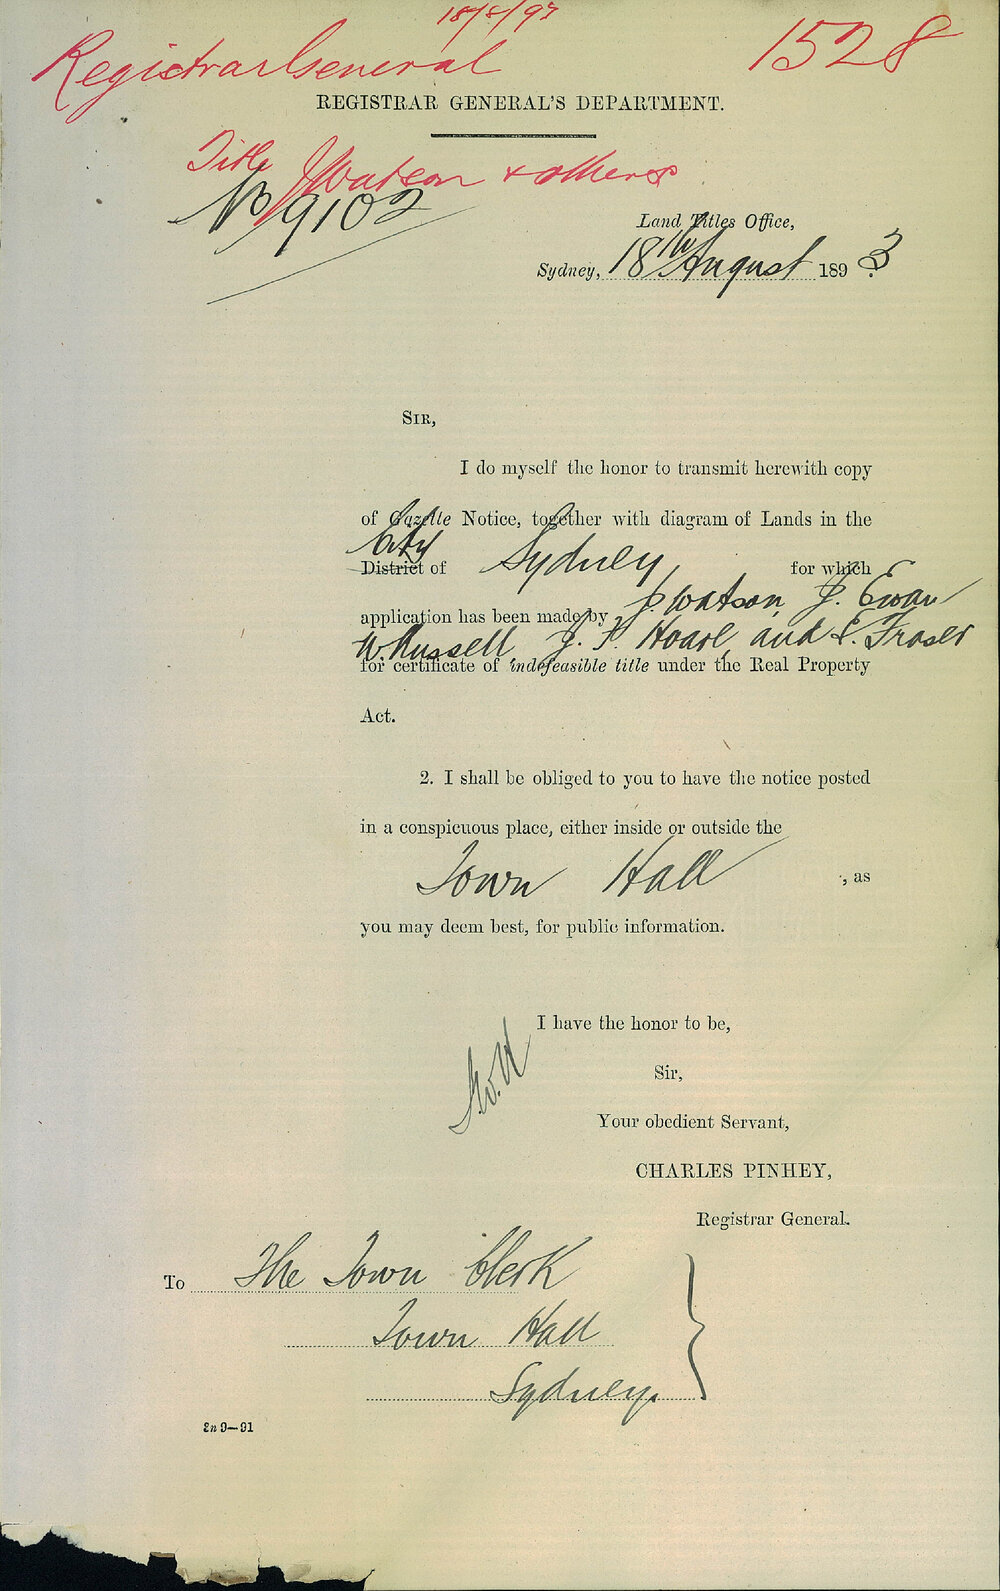 18/8/93
Registrar General 1528
REGISTRAR GENERAL'S DEPARTMENT.
Title J Watson & others
No 9102
Land Titles Office,
Sydney, 18th August 1893.
SIR,
I do myself the honor to transmit herewith copy
of Gazette Notice, together with diagram of Lands in the
City
District of Sydney, for which
application has been made by J. Watson, J. Ewan
W. Russell, J. P. Hoare, and E. Fraser
for certificate of indefeasible title under the Real Property
Act.
2. I shall be obliged to you to have the notice posted
in a conspicuous place, either inside or outside the
Town Hall , as
you may deem best, for public information.
I have the honor to be,
Sir,
Your obedient Servant,
CHARLES PINHEY,
Registrar General.
To The Town Clerk
Town Hall
Sydney.
2n 9—91